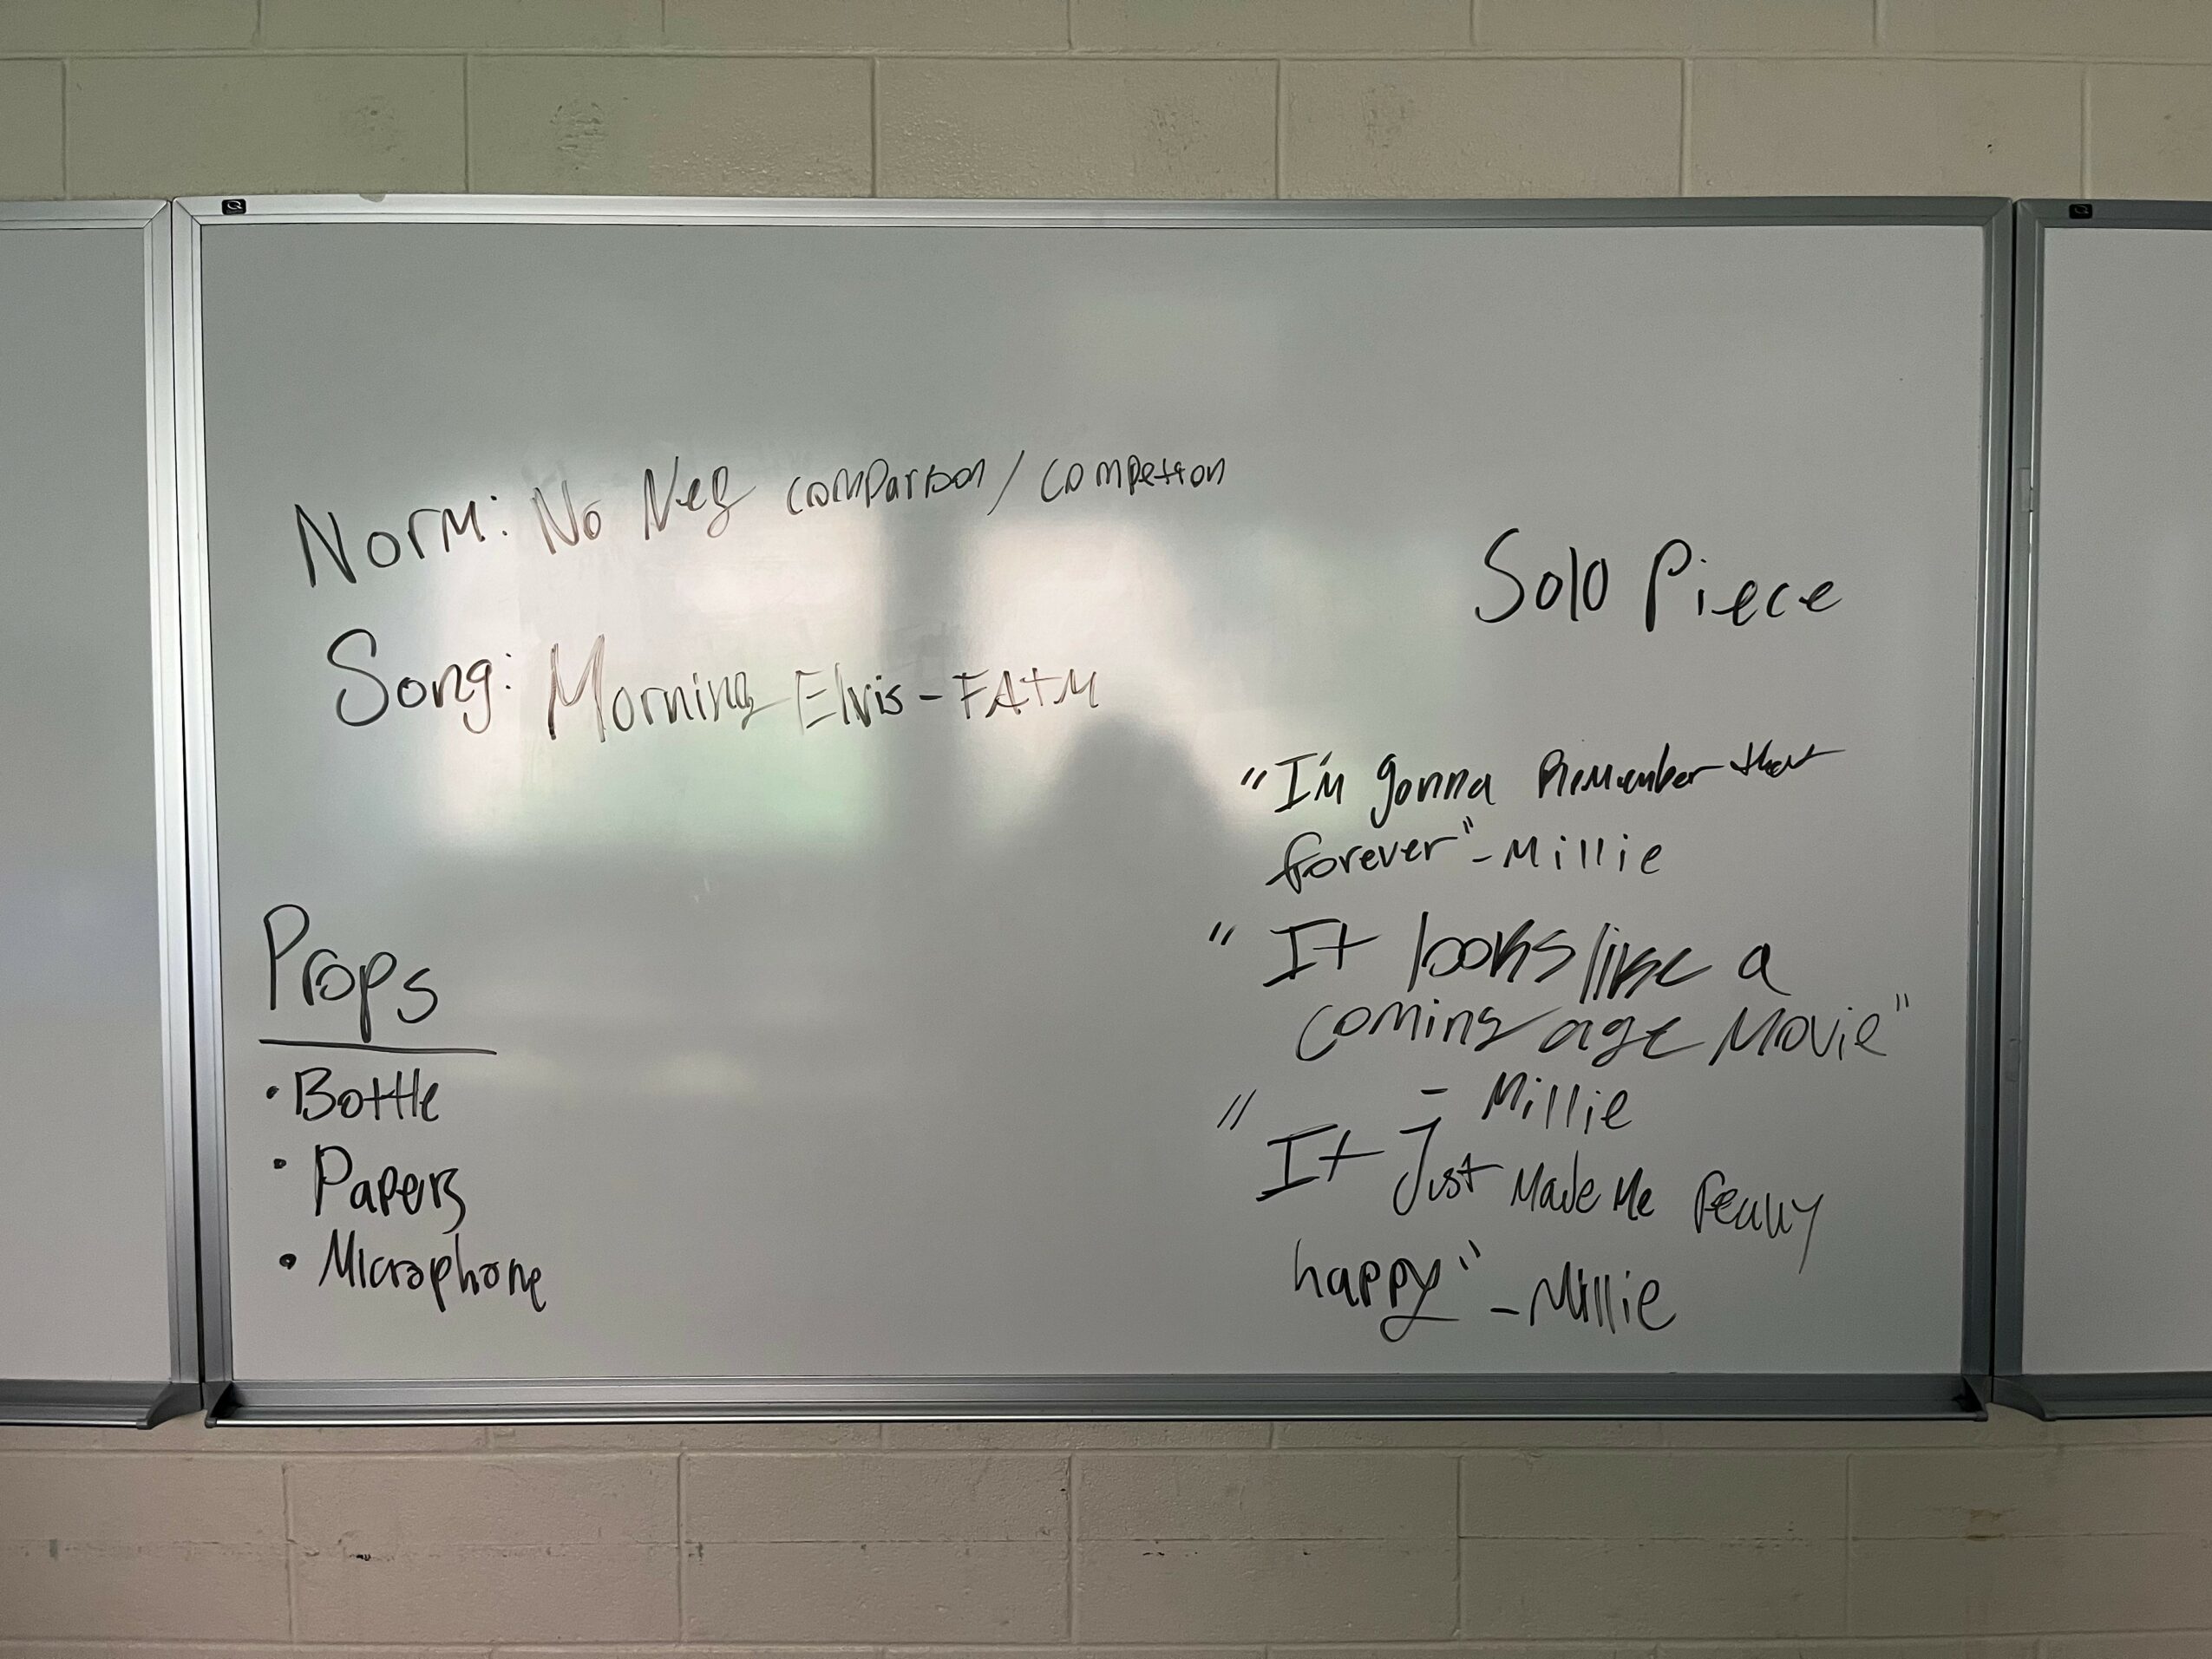 Norm: No Neg comparison / competion
Song: Morning Elvis - FATM
Solo Piece
"I'm gonna Remember that
forever" - Millie
" It looks like a
coming age Movie"
- Millie
" It Just Made Me really
happy" - Millie
Props
• Bottle
• Papers
• Microphone